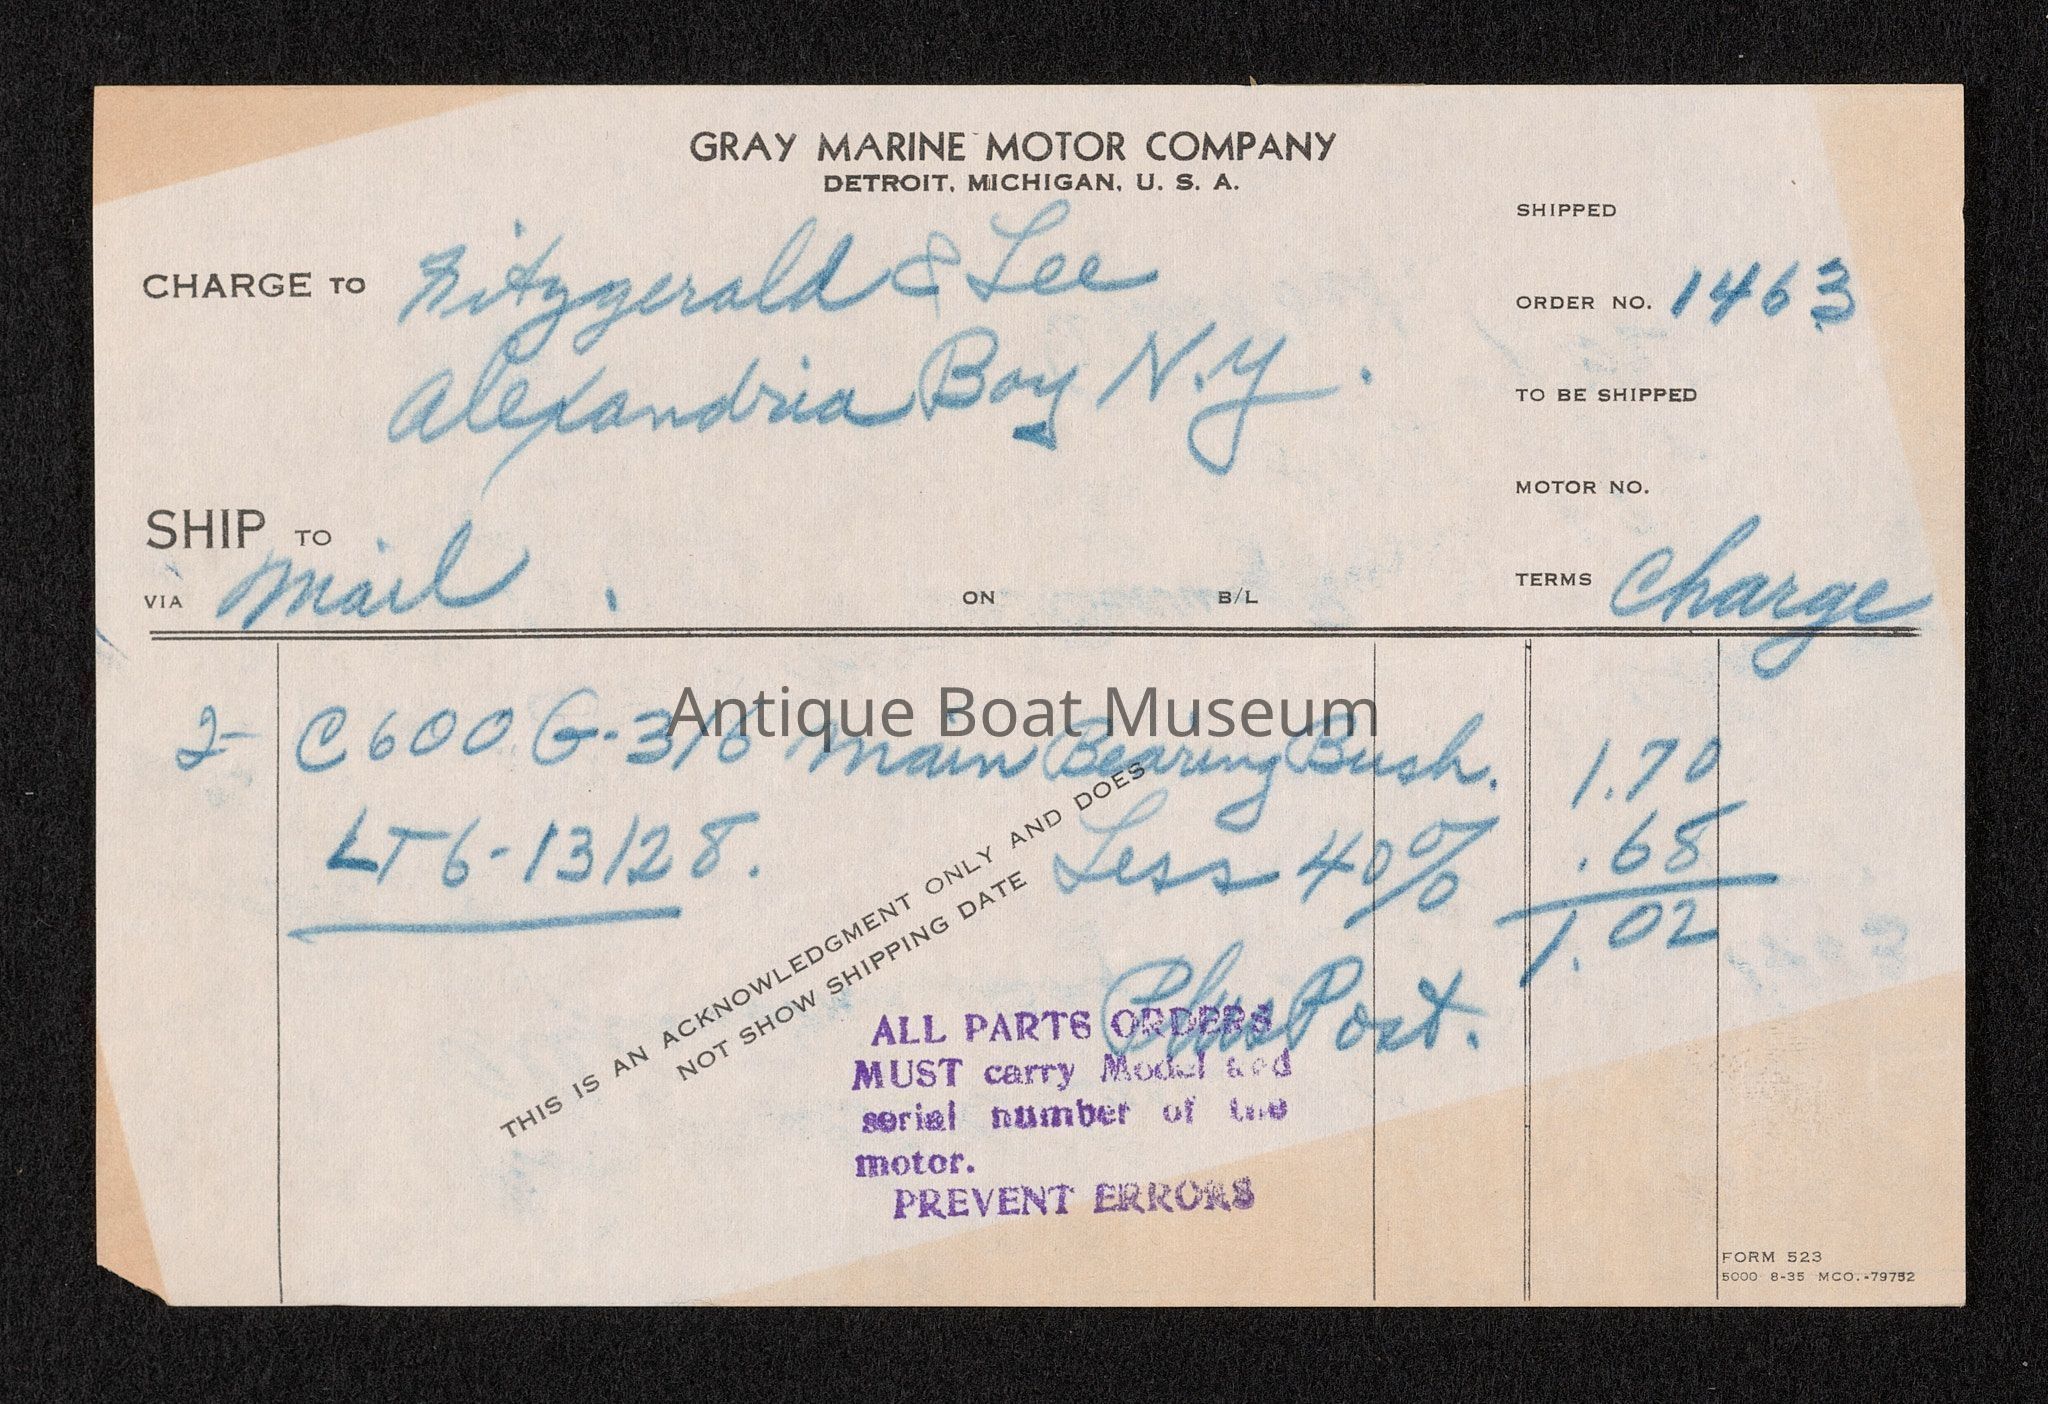 GRAY MARINE MOTOR COMPANY
DETROIT, MICHIGAN, U. S. A.
SHIPPED
CHARGE TO Fitzgerald & Lee
ORDER NO. 1463
Alexandria Bay N.Y.
TO BE SHIPPED
MOTOR NO.
SHIP TO
VIA Mail. ON B/L
TERMS Charge
Antique Boat Museum
2- C600 G-316 Main Bearing Bush. 1.70
LT6-13128. Less 40% .68
1.02
Plus Post.
THIS IS AN ACKNOWLEDGMENT ONLY AND DOES
NOT SHOW SHIPPING DATE
ALL PARTS ORDERS
MUST carry Model and
serial number of the
motor.
PREVENT ERRORS
FORM 523
5000 8-35 MCO.-79752